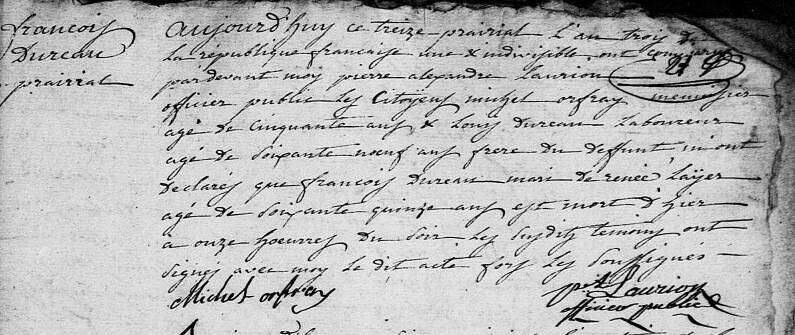 françois
Dureau
prairial
aujourd'huy ce treize prairial l'an trois de
la république francaise une & indivisible, ont comparu
pardevant moy pierre alexandre Laurion
officier public les Citoyens michel orfray menuisier
agé de Cinquante ans & Louis Dureau Laboureur
agé de Soixante neuf ans frere du deffunt m'ont
Declarés que francois Dureau mari de renée Layer
agé de Soixante quinze ans est mort d'hier
a onze hoeurres du Soir Les Susdits temoins ont
Signés avec moy le dit acte fors les Soussignés
Michel orfray
Laurion
officier public